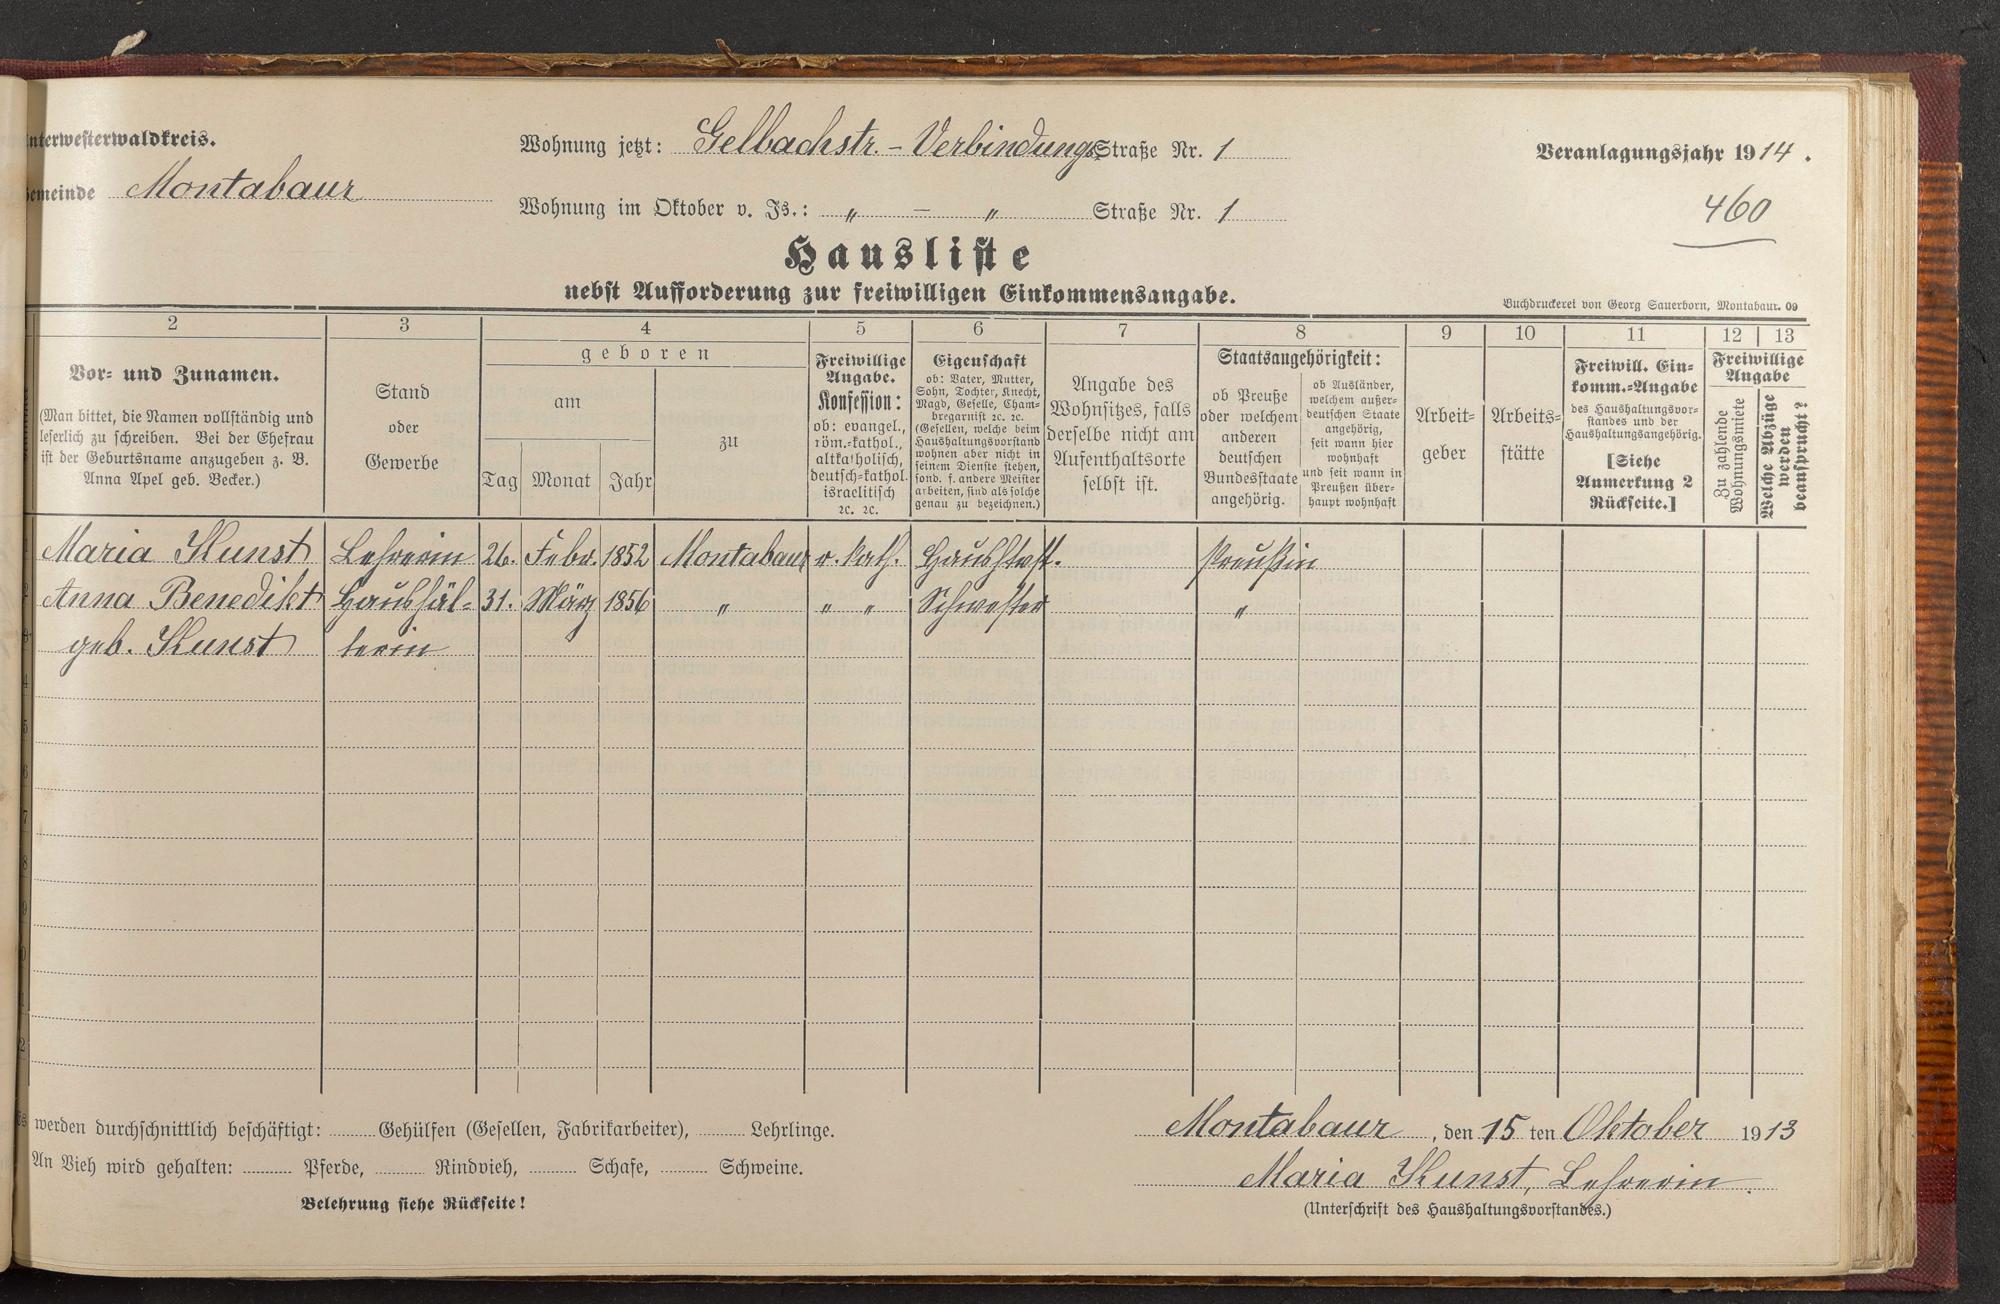 nterwesterwaldkreis.
Wohnung jetzt: Gelbachstr. - Verbindungs Straße Nr. 1
Veranlagungsjahr 1914.
emeinde Montabaur
Wohnung im Oktober v. Js.: " — " Straße Nr. 1
460
Hausliste
nebst Aufforderung zur freiwilligen Einkommensangabe.
Buchdruckerei von Georg Sauerborn, Montabaur. 09
2 3 4 5 6 7 8 9 10 11 12 13
Vor- und Zunamen.
(Man bittet, die Namen vollständig und
leserlich zu schreiben. Bei der Ehefrau
ist der Geburtsname anzugeben z. B.
Anna Apel geb. Becker.)
Stand
oder
Gewerbe
geboren
am
Tag Monat Jahr
zu
Freiwillige
Angabe.
Konfession:
ob: evangel.,
röm.-kathol.,
altkatholisch,
deutsch-kathol.
israelitisch
2c. 2c.
Eigenschaft
ob: Vater, Mutter,
Sohn, Tochter, Knecht,
Magd, Geselle, Cham-
bregarnist 2c. 2c.
(Gesellen, welche beim
Haushaltungsvorstand
wohnen aber nicht in
seinem Dienste stehen,
sond. f. andere Meister
arbeiten, sind als solche
genau zu bezeichnen.)
Angabe des
Wohnsitzes, falls
derselbe nicht am
Aufenthaltsorte
selbst ist.
Staatsangehörigkeit:
ob Preuße
oder welchem
anderen
deutschen
Bundesstaate
angehörig.
ob Ausländer,
welchem außer-
deutschen Staate
angehörig,
seit wann hier
wohnhaft
und seit wann in
Preußen über-
haupt wohnhaft
Arbeit-
geber
Arbeits-
stätte
Freiwill. Ein-
komm.-Angabe
des Haushaltungsvor-
standes und der
Haushaltungsangehörig.
[Siehe
Anmerkung 2
Rückseite.]
Freiwillige
Angabe
Zu zahlende
Wohnungsmiete
Welche Abzüge
werden
beansprucht?
1 Maria Kunst Lehrerin 26. Febr. 1852 Montabaur r. kath. Haushltvst. Preußin
2 Anna Benedikt Haushäl- 31. März 1856 " " " Schwester "
3 geb. Kunst terin
4
5
6
7
8
9
0
1
2
Es werden durchschnittlich beschäftigt: Gehülfen (Gesellen, Fabrikarbeiter), Lehrlinge.
An Vieh wird gehalten: Pferde, Rindvieh, Schafe, Schweine.
Belehrung siehe Rückseite!
Montabaur, den 15 ten Oktober 1913
Maria Kunst, Lehrerin.
(Unterschrift des Haushaltungsvorstandes.)